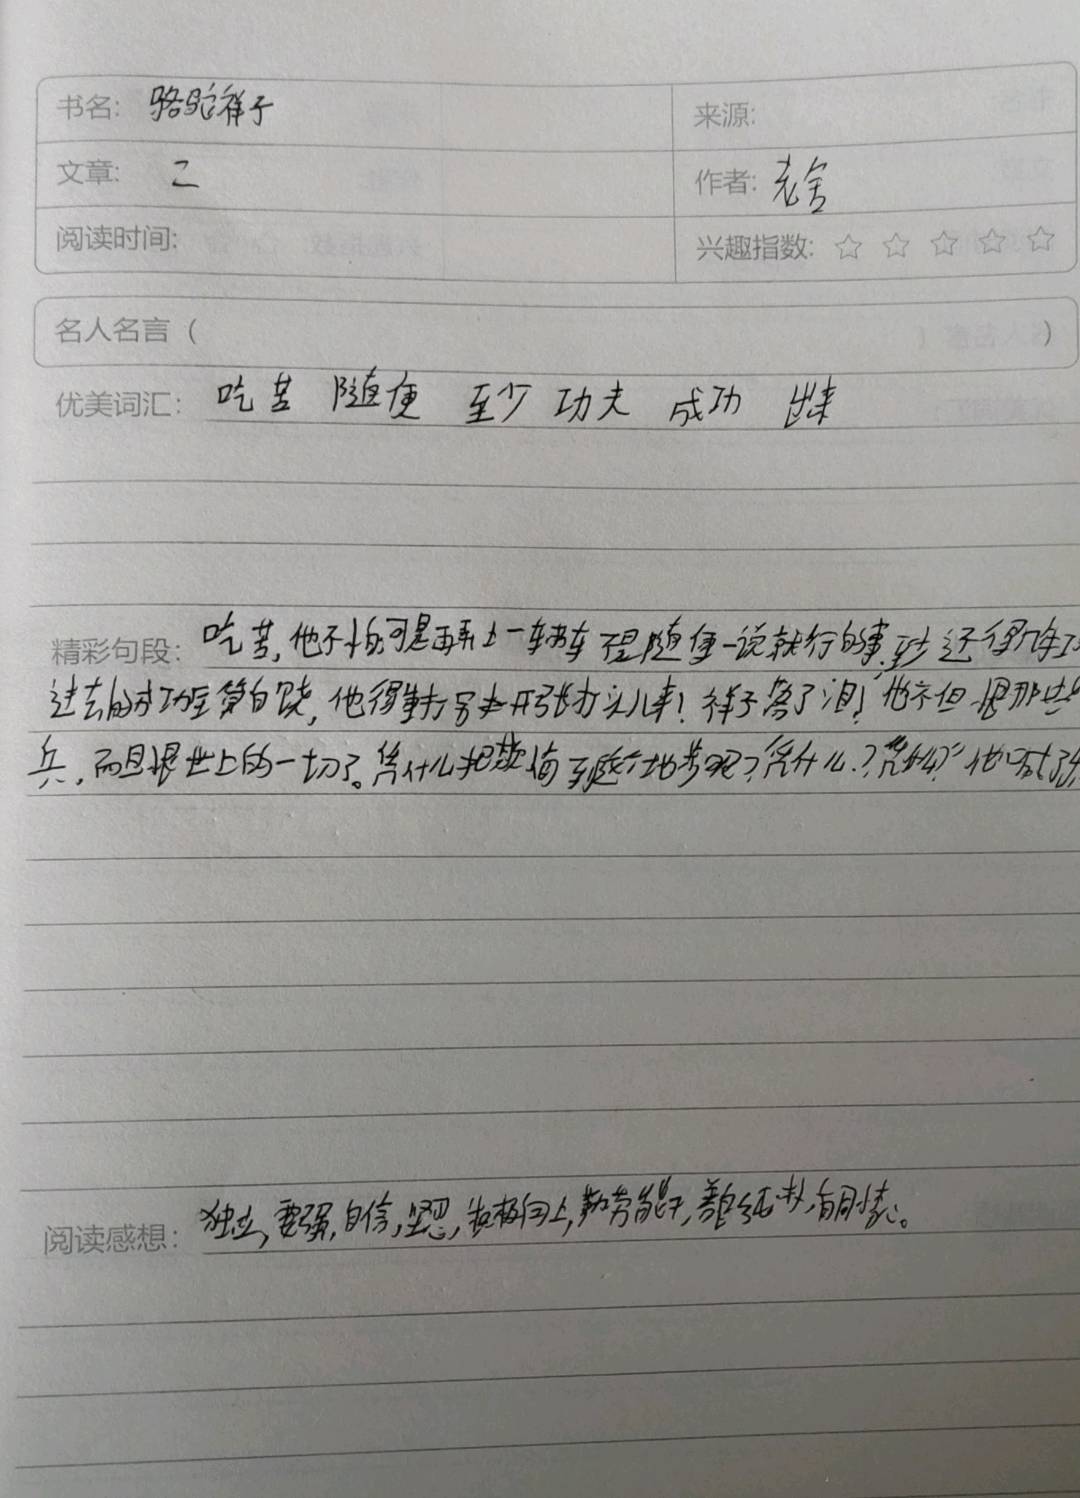 书名: 骆驼祥子
来源:
文章: 二
作者: 老舍
阅读时间:
兴趣指数: ☆ ☆ ☆ ☆ ☆
名人名言 ( )
优美词汇: 吃苦 随便 至少 功夫 成功 出来
精彩句段: 吃苦,他不怕,可是再弄上一辆车不是随便一说就行的事,至少还得几年
过去的成功全算白饶,他得重打另开张打头儿来!祥子落了泪!他不但恨那些
兵,而且恨世上的一切了。凭什么把欺侮到这个地步呢?凭什么?凭什么?"他喊了
阅读感想: 独立,要强,自信,坚忍,积极向上,勤劳能干,善良纯朴,有同情心。